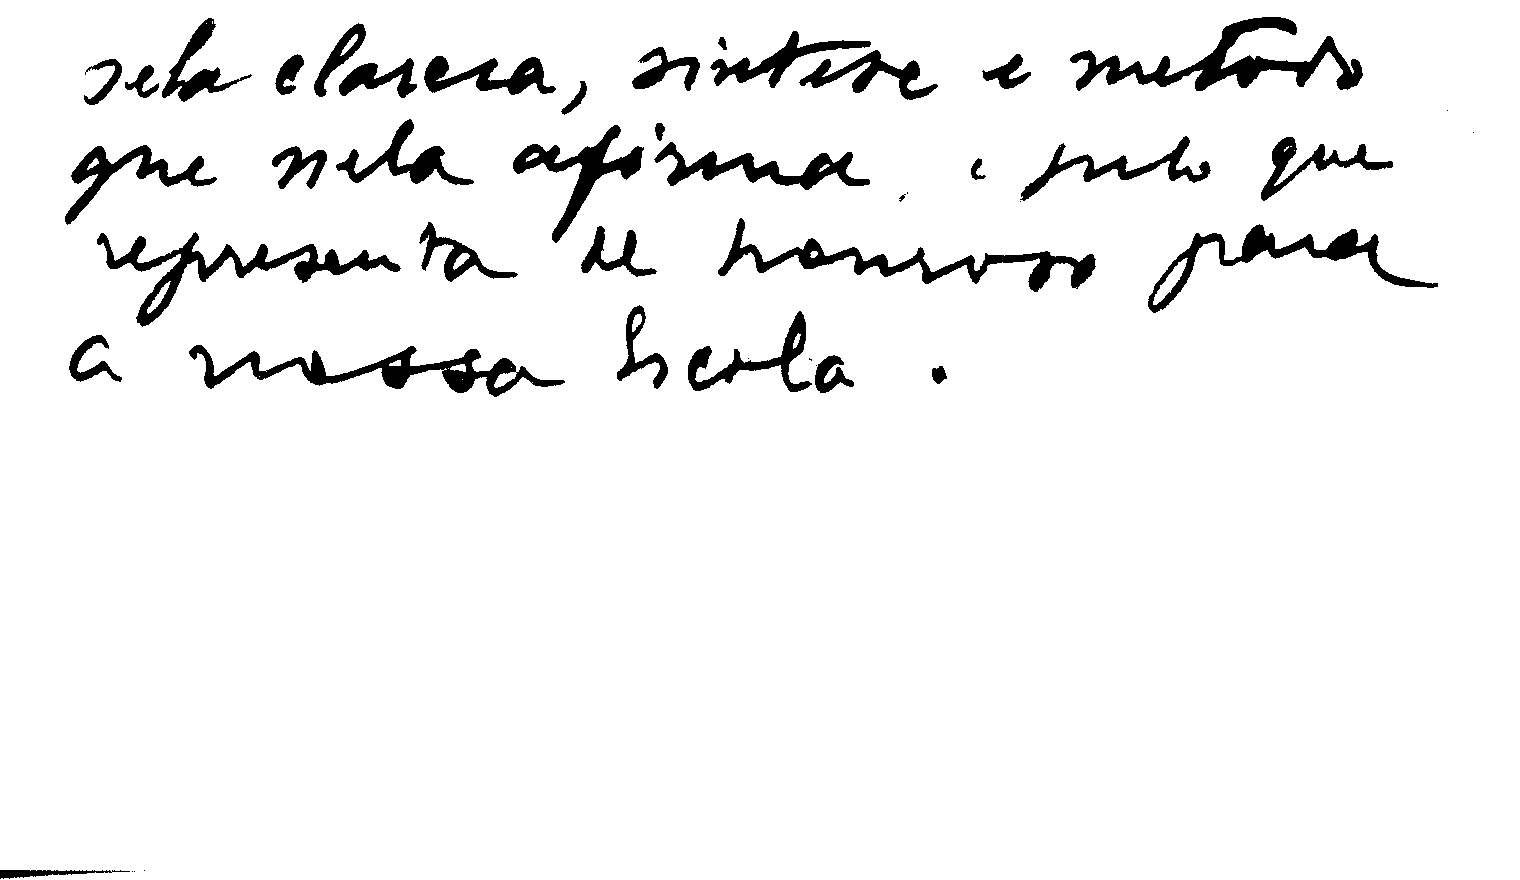 pela clareza, sintese e metodo
que nela afirma, e pelo que
representa de honroso para
a nossa Escola.